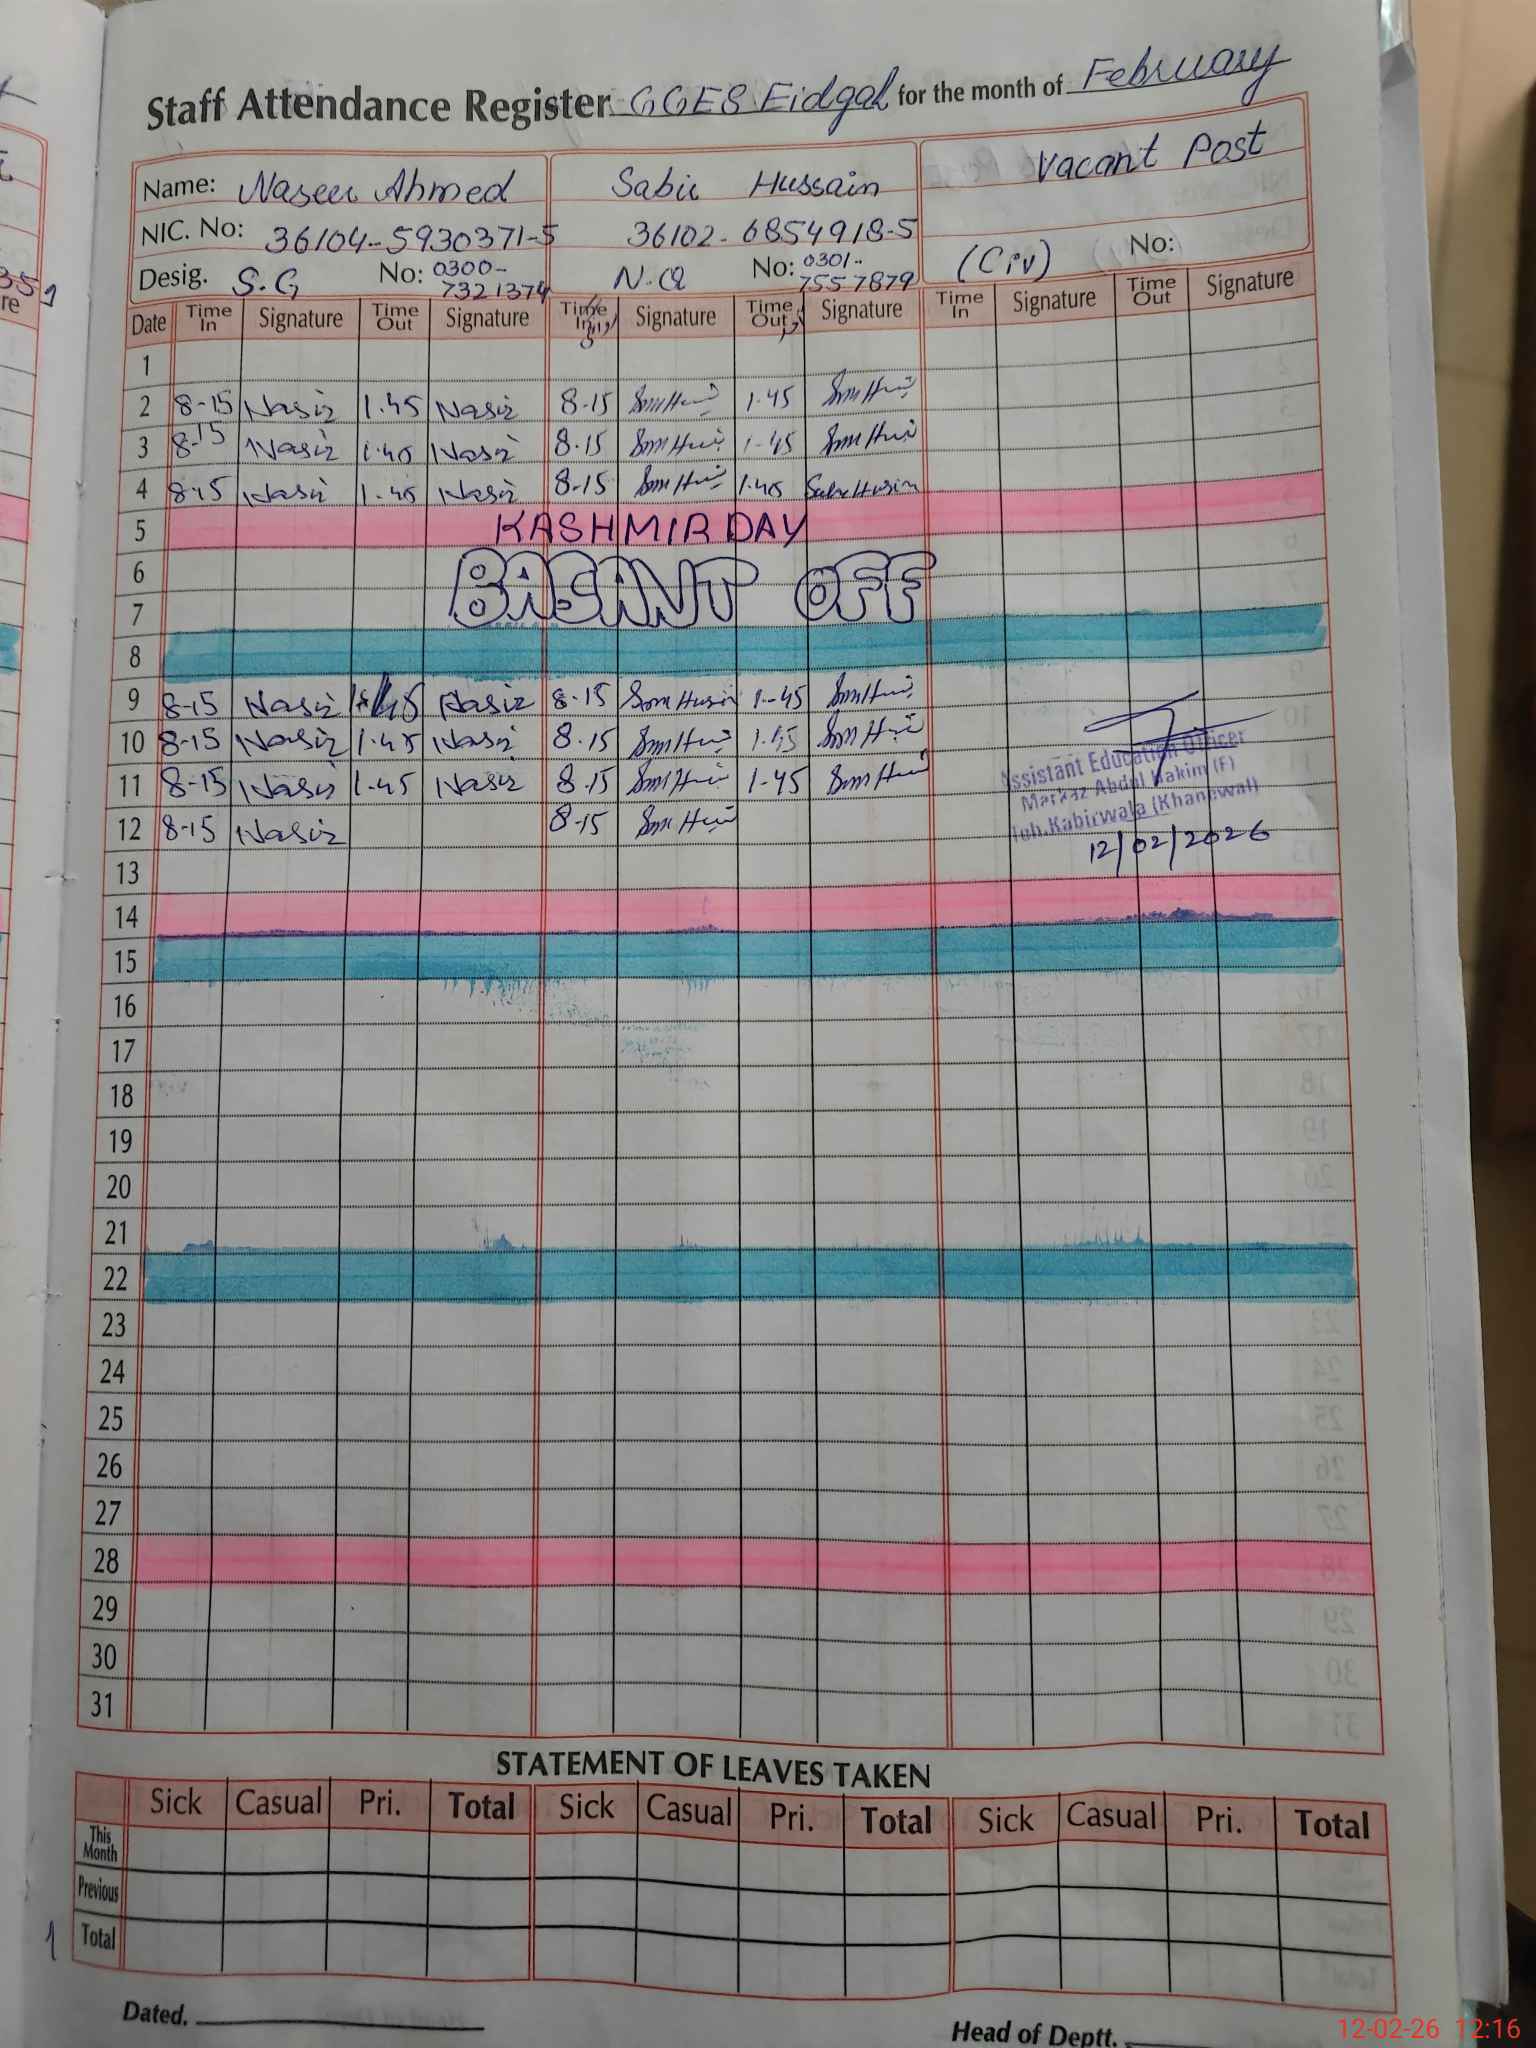 Staff Attendance Register GGES Eidgah for the month of February
Name: Naseer Ahmed Sabir Hussain Vacant Post
NIC. No: 36104-5930371-5 36102-6854918-5
Desig. S.G No: 0300-7321374 N.Q No: 0301-7557879 (Civ) No:
Date Time In Signature Time Out Signature Time In Signature Time Out Signature Time In Signature Time Out Signature
1
2 8-15 Nasir 1.45 Nasir 8-15 1.45
3 8-15 Nasir 1.45 Nasir 8.15 1.45
4 8-15 Nasir 1.45 Nasir 8-15 1.45
5 KASHMIR DAY
6
BASANT OFF
7
8
9 8-15 Nasir 1.45 Nasir 8.15 1.45
10 8-15 Nasir 1.45 Nasir 8.15 1.45
11 8-15 Nasir 1.45 Nasir 8.15 1.45
12 8-15 Nasir 8-15
Assistant Education Officer
Markaz Abdul Hakim (F)
Teh. Kabirwala (Khanewal)
12/02/2026
13
14
15
16
17
18
19
20
21
22
23
24
25
26
27
28
29
30
31
STATEMENT OF LEAVES TAKEN
Sick Casual Pri. Total Sick Casual Pri. Total Sick Casual Pri. Total
This Month
Previous
Total
Dated. Head of Deptt.
12-02-26 12:16